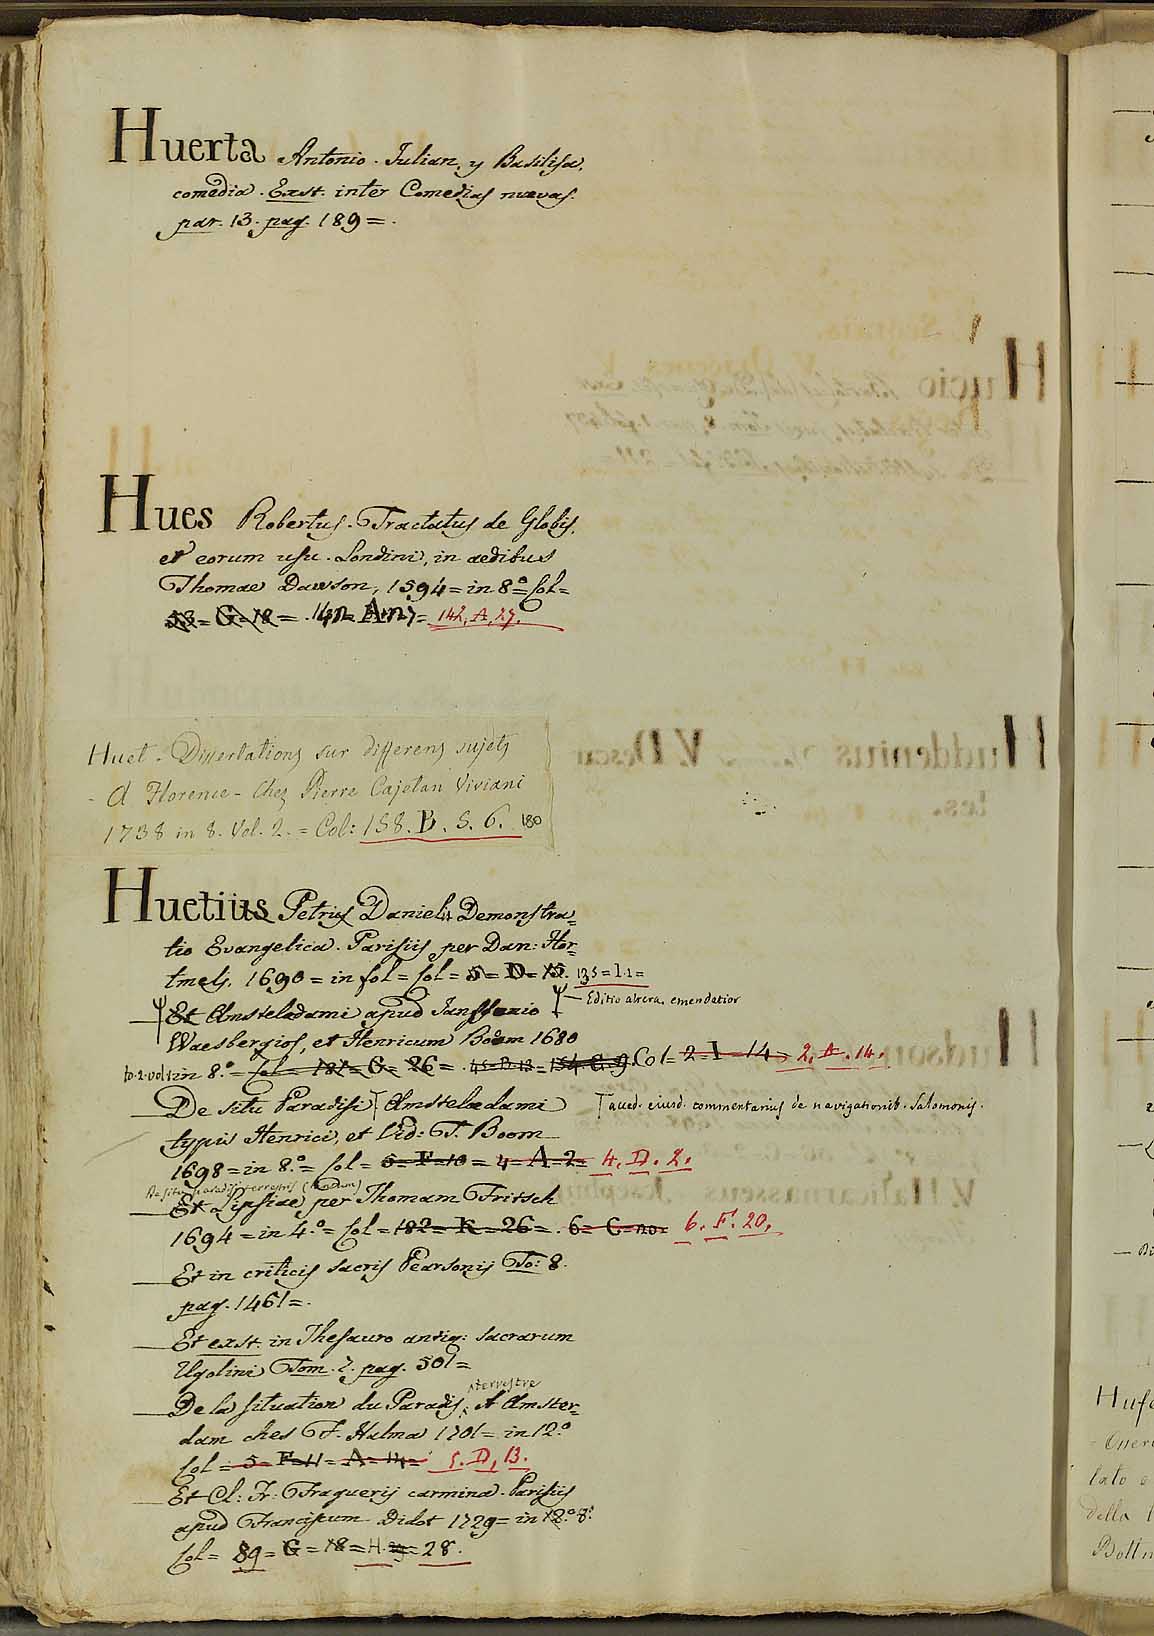 Huerta Antonio. Iulian, y Basilisa,
comedia. Exst. inter Comedias nuevas.
par. 13. pag. 189 = .
Hues Robertus. Tractatus de Globis,
et eorum usu. Londini, in aedibus
Thomae Dawson, 1594 = in 8.º = Col =
53 = G = 18 = . 142, A, 27.
Huet - Dissertations sur differens sujets
- A Florence - Chez Pierre Cajetan Viviani
1738 in 8. Vol. 2. = Col: 158. B. 5. 6. 180
Huetius Petrus Daniel. Demonstra=
tio Evangelica. Parisiis, per Dan: Hor=
tmels. 1690 = in fol = Col = 5 = D = 15. 135 = I. 1 =
Et Amstelodami apud Janssonio
— Editio altera, emendatior
Waesbergios, et Henricum Boom 1680
to. 2. vol. 1. in 8.º = Col = 181 = G = 26 = . 45 = B = 13 = 154. G. 9. Col = 2 = I = 14 2, A. 14.
De situ Paradisi Amstelaedami
aued. eiusd. commentarius de navigationib. Salomonis.
typis Henrici, et Vid: T. Boom
1698 = in 8.º = Col = 5 = F = 10 = 4 = A = 2 = 4. D. 2.
De situ paradisi terrestris
Et Lipsiae, per Thomam Fritsch
1694 = in 4.º = Col = 182 = K = 26 = . 6 = C = 6. F. 20.
Et in criticis sacris Pearsonij To: 8.
pag. 1461 = .
Et exst. in Thesauro antiq: sacrarum
Ugolini Tom. 7. pag. 501 =
terrestre
De la situation du Paradis, A Amster=
dam ches F. Halma 1701 = in 12.º
Col = 5 = F = 11 = A = 14 = 5. D, 13.
Et Cl: Fr: Fraguerij carmina. Parisiis
apud Franciscum Didot 1729 = in 12.º 8.º
Col = 89 = G = 18 = H. = 28.